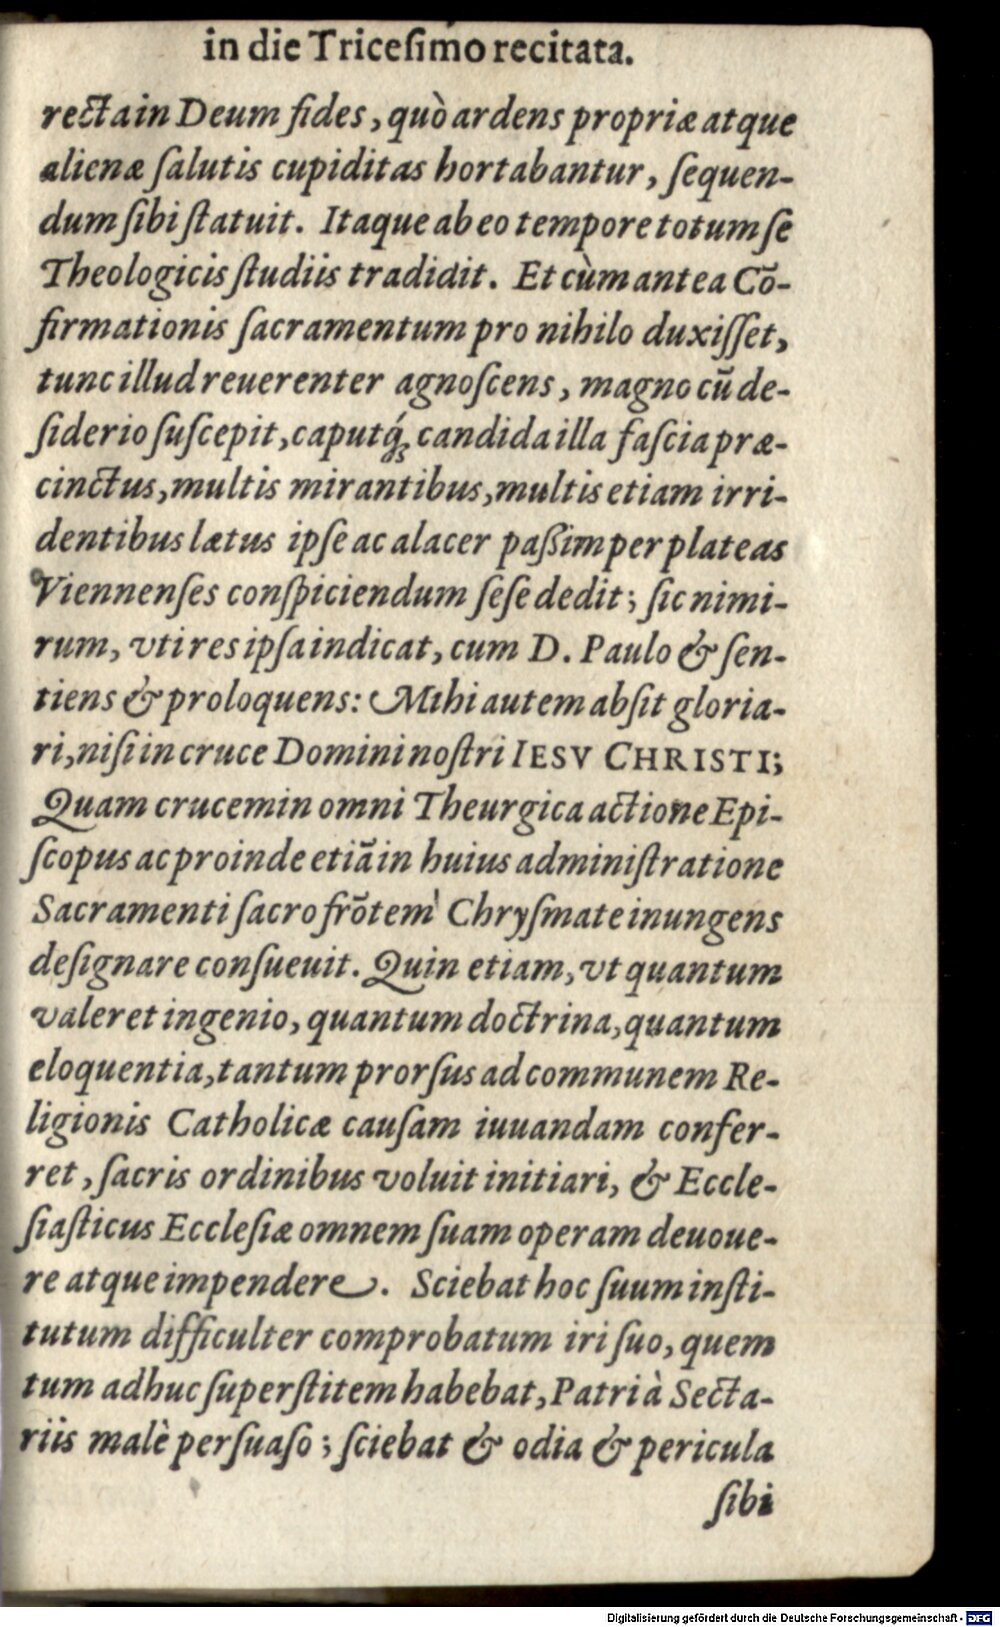 in die Triceſimo recitata.
recta in Deum fides, quò ardens propriæ atque
alienæ ſalutis cupiditas hortabantur, ſequen-
dum ſibi ſtatuit. Itaque ab eo tempore totum ſe
Theologicis ſtudiis tradidit. Et cùm antea Cõ-
firmationis ſacramentum pro nihilo duxiſſet,
tunc illud reuerenter agnoſcens, magno cũ de-
ſiderio ſuſcepit, caputq́; candida illa faſcia præ-
cinctus, multis mirantibus, multis etiam irri-
dentibus lætus ipſe ac alacer paßim per plateas
Viennenſes conſpiciendum ſeſe dedit; ſic nimi-
rum, vti res ipſa indicat, cum D. Paulo & ſen-
tiens & proloquens: Mihi autem abſit gloria-
ri, niſi in cruce Domini noſtri IESV CHRISTI;
Quam crucem in omni Theurgica actione Epi-
ſcopus ac proinde etiã in huius adminiſtratione
Sacramenti ſacro frõtem̀ Chryſmate inungens
deſignare conſueuit. Quin etiam, vt quantum
valeret ingenio, quantum doctrina, quantum
eloquentia, tantum prorſus ad communem Re-
ligionis Catholicæ cauſam iuuandam confer-
ret, ſacris ordinibus voluit initiari, & Eccle-
ſiaſticus Eccleſiæ omnem ſuam operam deuoue-
re atque impendere. Sciebat hoc ſuum inſti-
tutum difficulter comprobatum iri ſuo, quem
tum adhuc ſuperſtitem habebat, Patri à Secta-
riis malè perſuaſo; ſciebat & odia & pericula
ſibi
Digitalisierung gefördert durch die Deutsche Forschungsgemeinschaft - DFG